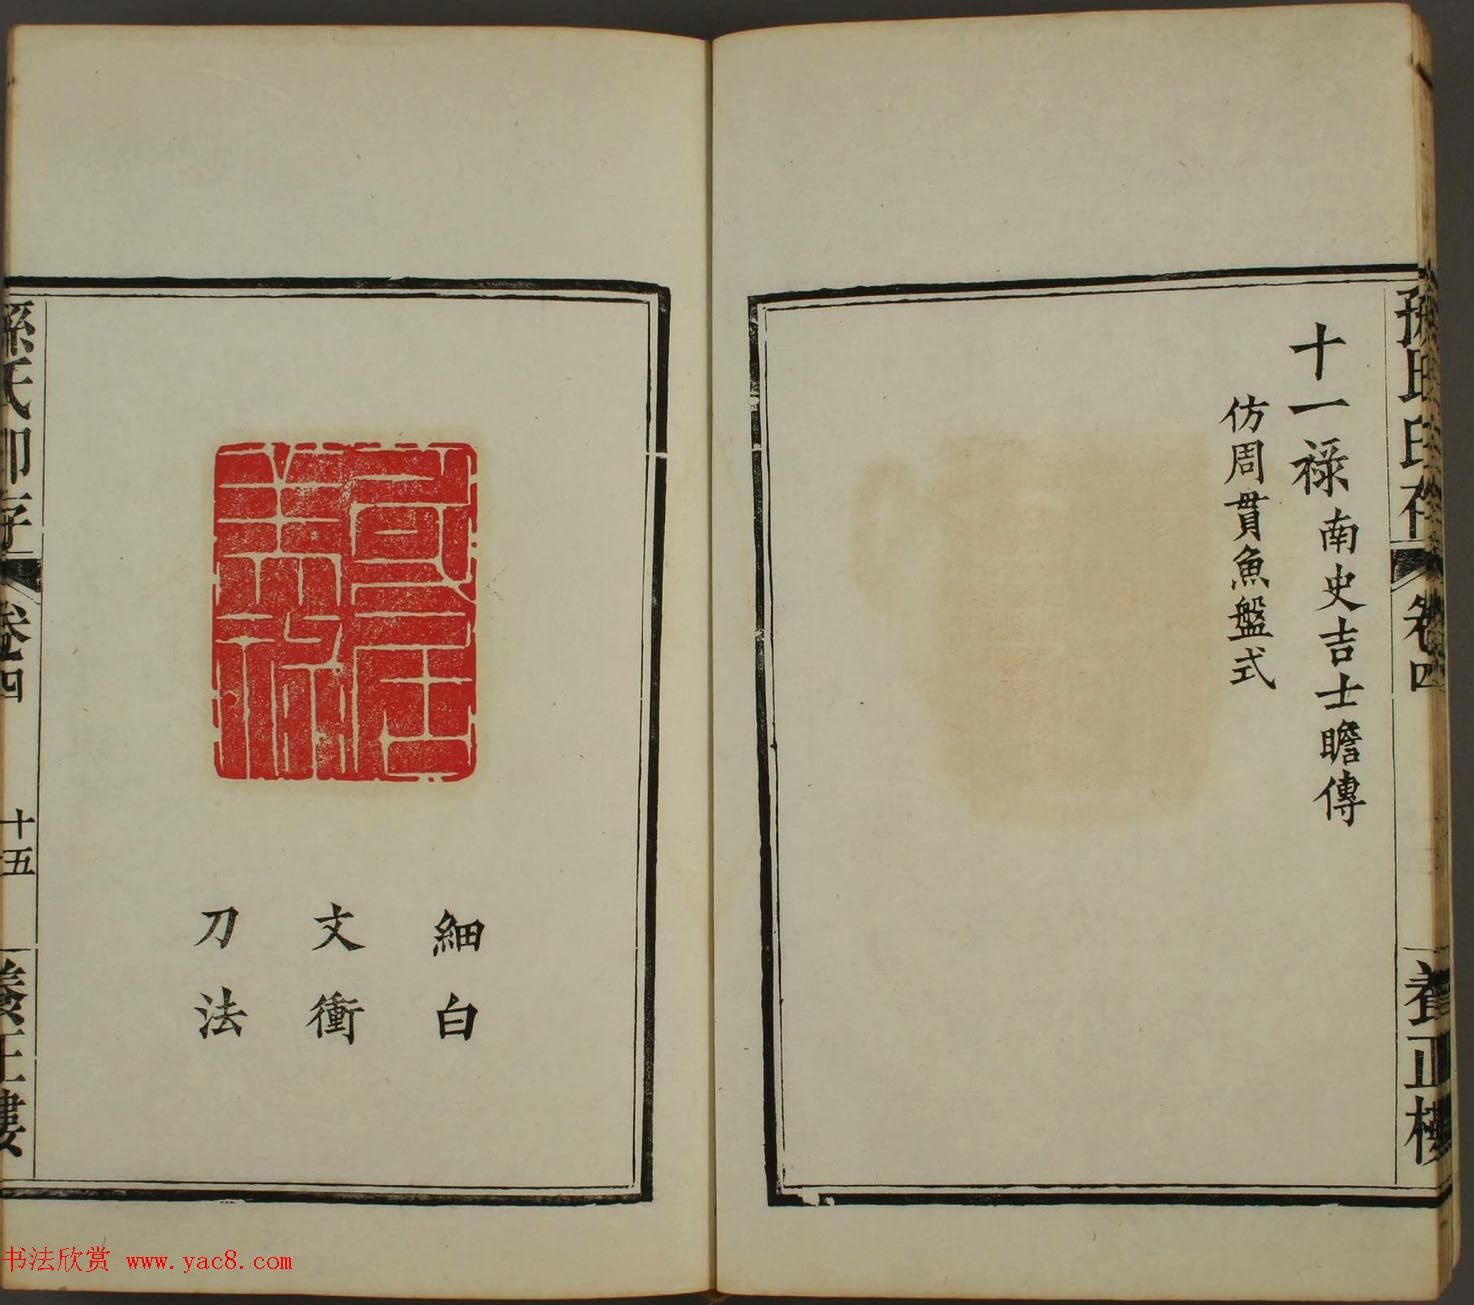 孫氏印存 卷四 養正樓
十一祿南史吉士瞻傳
仿周貫魚盤式
細白
文衝
刀法
孫氏印存 卷四 十五 養正樓
书法欣赏 www.yac8.com